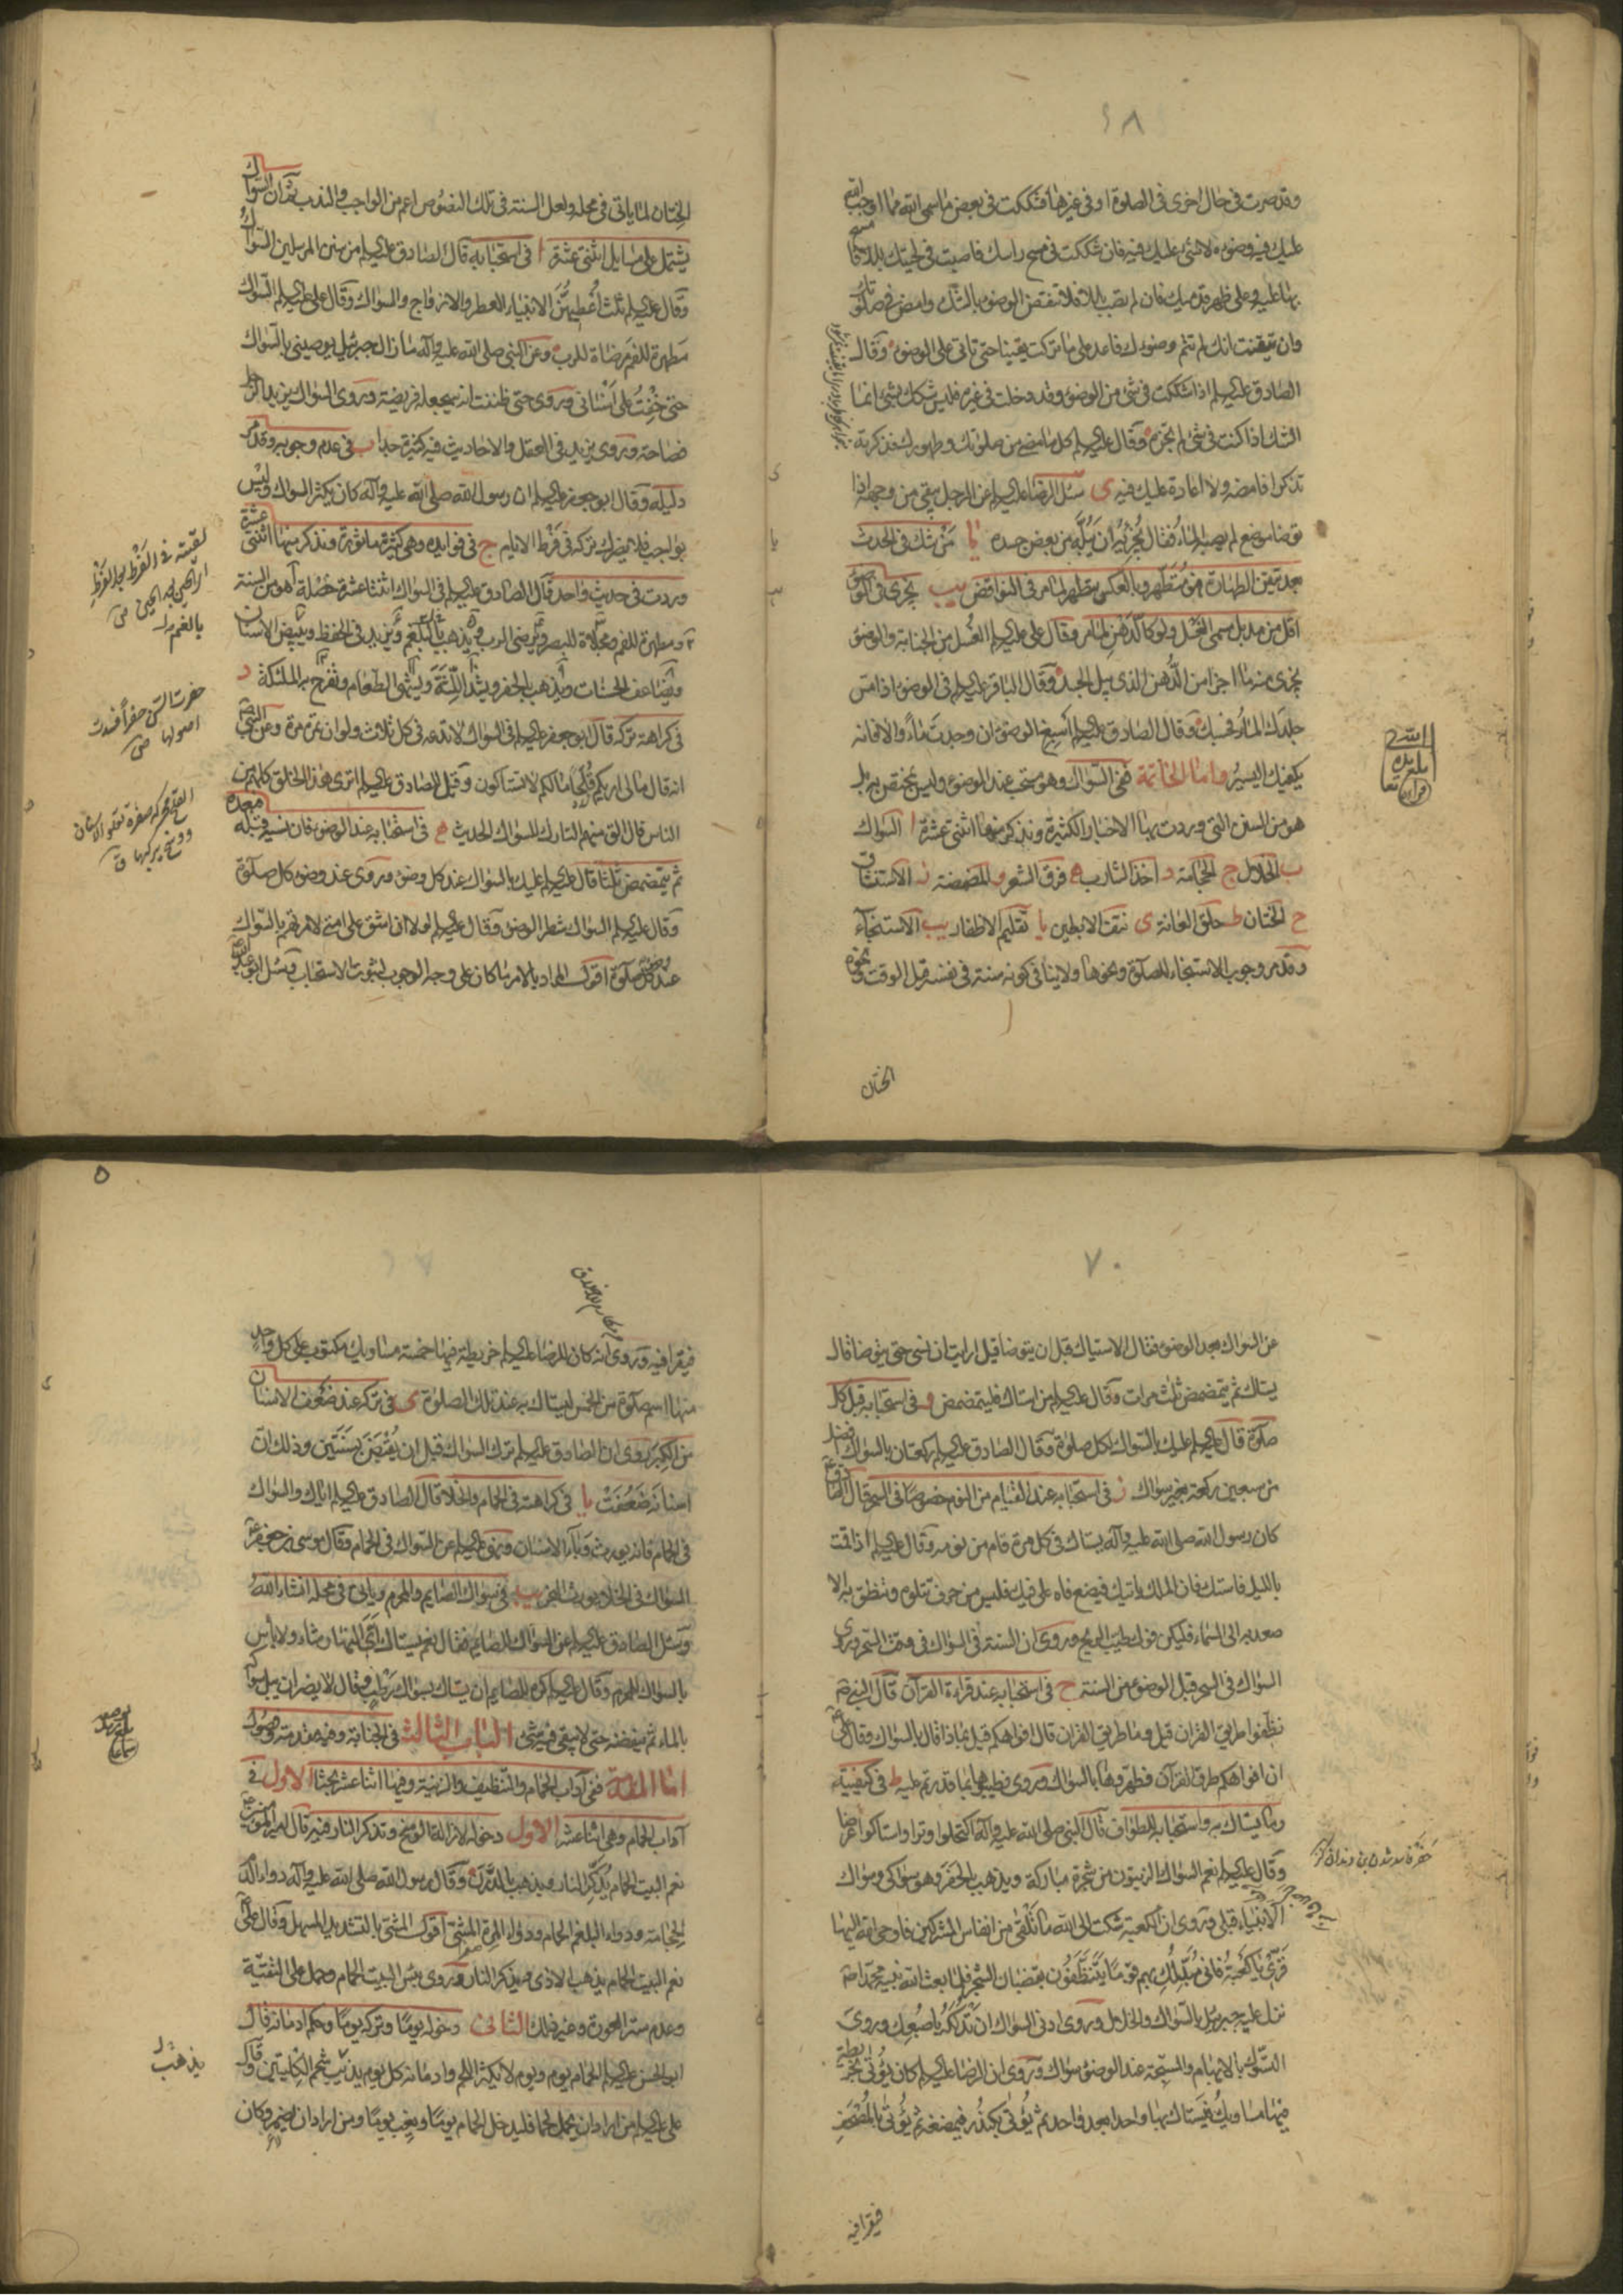 ٦٨
وقد صرت في حال اخرى في الصلوة او في غيرها فشككت في بعض ما سمى الله مما اوجب الله
عليك فيه وضوءه لا شئ عليك فيه فان شككت في مسح راسك فاصبت في لحيتك بللا فامسح
بها عليه وعلى ظهر قدميك فان لم تصب بللا فلا تنقض الوضوء بالشك وامض في صلوتك
وان تيقنت انك لم تتم وضوءك فاعد على ما تركت يقينا حتى تاتي على الوضوء وقال
الصادق عليه السلم اذا شككت في شئ من الوضوء وقد دخلت في غيره فليس شكك بشئ انما
الشك اذا كنت في شئ لم تجزه وقال عليه السلم كل ما مضى من صلوتك وطهورك فذكرته
تذكرا فامضه ولا اعادة عليك فيه ى سئل الرضا عليه السلم عن الرجل يبقى من وجهه اذا
توضا موضع لم يصبه الماء فقال يجزئه ان يبله من بعض جسده يا من شك في الحدث
بعد تيقن الطهارة فهو متطهر وبالعكس متطهر لما مر في النواقض يب يجزى في الوضوء
اقل من مد بل مسمى الغسل ولو كالدهن لما مر وقال علي عليه السلم الغسل من الجنابة والوضوء
يجزى منه ما اجزا من الدهن الذى يبل الجسد وقال الباقر عليه السلم في الوضوء اذا مس
جلدك الماء فحسبك وقال الصادق عليه السلم اسبغ الوضوء ان وجدت ماء والا فانه
يكفيك اليسير واما الخاتمة ففي السواك وهو مستحب عند الوضوء وليس بمختص به بل
هو من السنن التي وردت بها الاخبار الكثيرة ونذكر منها اثنتى عشرة ا السواك
ب الخلال ج الحجامة د اخذ الشارب ه فرق الشعر و المضمضة ز الاستنشاق
ح الختان ط حلق العانة ى نتف الابطين يا تقليم الاظفار يب الاستنجآء
وقد مر وجوب الاستنجاء للصلوة ونحوها ولا ينافي كونه سنة في نفسه قبل الوقت ونحوه
الختان
الختان لما ياتي في محله ولعل السنة في تلك النصوص اعم من الواجب والندب ثم ان السواك
يشتمل على مسايل اثنتى عشرة ا في استحبابه قال الصادق عليه السلم من سنن المرسلين السواك
وقال عليه السلم ثلث اعطيهن الانبياء العطر والازواج والسواك وقال علي عليه السلم السواك
مطهرة للفم مرضاة للرب وعن النبي صلى الله عليه وآله ما زال جبرئيل يوصيني بالسواك
حتى خفت على اسناني وروى حتى ظننت انه سيجعله فريضة وروى السواك يزيد الرجل
فصاحة وروى يزيد في العقل والاحاديث فيه كثيرة جدا ب في عدم وجوبه وقد مر
دليله وقال ابو جعفر عليه السلم ان رسول الله صلى الله عليه وآله كان يكثر السواك وليس
بواجب فلا يضرك تركه في فرط الايام ج في فوايده وهي كثيرة ماثورة ونذكر منها اثنتى عشرة
وردت في حديث واحد قال الصادق عليه السلم في السواك اثنتا عشرة خصلة هو من السنة
ومطهرة للفم ومجلاة للبصر ويرضى الرب ويذهب بالبلغم ويزيد في الحفظ ويبيض الاسنان
ويضاعف الحسنات ويذهب بالحفر ويشد اللثة ويشهى الطعام وتفرح به الملئكة د
في كراهة تركه قال ابو جعفر عليه السلم في السواك لا تدعه في كل ثلاث ولو ان تمره مرة وعن النبي ص
انه قال ما لى اراكم قلحا ما لكم لا تستاكون وقيل للصادق عليه السلم اترى هذا الخلق كلهم من
الناس قال الق منهم التارك للسواك الحديث ه في استحبابه عند الوضوء فان نسيه قبله فبعده
ثم يتمضمض ثلثا قال عليه السلم عليك بالسواك عند كل وضوء وروى عند وضوء كل صلوة
وقال عليه السلم السواك شطر الوضوء وقال عليه السلم لولا ان اشق على امتي لامرتهم بالسواك
عند وضوء كل صلوة اقول المراد بالامر ما كان على وجه الوجوب لثبوت الاستحباب وسئل ابو عبد الله ع
٧٠
عن السواك بعد الوضوء فقال الاستياك قبل ان يتوضا قيل ارايت ان نسى حتى يتوضا قال
يستاك ثم يتمضمض ثلث مرات وقال عليه السلم من استاك فليتمضمض و في استحبابه قبل كل
صلوة قال عليه السلم عليك بالسواك لكل صلوة وقال الصادق عليه السلم ركعتان بالسواك افضل
من سبعين ركعة بغير سواك ز في استحبابه عند القيام من النوم خصوصا في السحر قال الصادق ع
كان رسول الله صلى الله عليه وآله يستاك في كل مرة قام من نومه وقال عليه السلم اذا قمت
بالليل فاستك فان الملك ياتيك فيضع فاه على فيك فليس من حرف تتلوه وتنطق به الا
صعد به الى السماء فليكن فوك طيب الريح وروى ان السنة في السواك في وقت السحر وروى
السواك في السحر قبل الوضوء من السنة ح في استحبابه عند قراءة القرآن قال النبي ص
نظفوا طريق القران قيل وما طريق القران قال افواهكم قيل بماذا قال بالسواك وقال علي ع
ان افواهكم طرق القرآن فطهروها بالسواك وروى فطيبوها بما قدرتم عليه ط في كيفيته
وما يستاك به واستحبابه للطواف قال النبي صلى الله عليه وآله اكتحلوا وترا واستاكوا عرضا
وقال عليه السلم نعم السواك الزيتون من شجرة مباركة ويذهب بالحفر وهو سواكى وسواك
الانبياء قبلى وروى ان الكعبة شكت الى الله ما تلقى من انفاس المشركين فاوحى الله اليها
قرى يا كعبة فاني مبدلك بهم قوما يتنظفون بقضبان الشجر فلما بعث الله نبيه محمدا ص
نزل عليه جبرئيل بالسواك والخلال وروى ادنى السواك ان تدلكه باصبعك وروى
التسوك بالابهام والمسبحة عند الوضوء سواك وروى ان الرضا عليه السلم كان يؤتى بخريطة
فيها مساويك فيستاك بها واحدا بعد واحد ثم يؤتى بكندر فيمضغه ثم يؤتى بالمصحف
فيقرا فيه
فيقرا فيه وروى انه كان للرضا عليه السلم خريطة فيها خمسة مساويك مكتوب على كل واحد
منها اسم صلوة من الخمس ليستاك به عند تلك الصلوة ى في تركه عند ضعف الاسنان
من الكبر روى ان الصادق عليه السلم ترك السواك قبل ان يقبض بسنتين وذلك ان
اسنانه ضعفت يا في كراهته في الحمام والخلا قال الصادق عليه السلم اياك والسواك
في الحمام فانه يورث وباء الاسنان ونهى عليه السلم عن السواك في الحمام وقال موسى بن جعفر ع
السواك في الخلا يورث البخر يب في سواك الصايم والمحرم وياتي في محله انشاء الله
وسئل الصادق عليه السلم عن السواك للصايم فقال نعم يستاك اى النهار شاء ولا باس
بالسواك للمحرم وقال عليه السلم اكره للصايم ان يستاك بسواك رطب وقال لا يضر ان يبل سواكه
بالماء ثم ينفضه حتى لا يبقى فيه شئ الباب الثالث في الجنابة وفيه مقدمة وفصول
اما المقدمة ففي آداب الحمام والتنظيف والزينة وفيها اثنا عشر بحثا الاول في
آداب الحمام وهي اثنا عشر الاول دخوله لازالة الوسخ وتذكر النار فيه قال امير المؤمنين ع
نعم البيت الحمام يذكر النار ويذهب بالدرن وقال رسول الله صلى الله عليه وآله دواء الدم
الحجامة ودواء البلغم الحمام ودواء المرة المشى اقول المشى بالتشديد المسهل وقال علي ع
نعم البيت الحمام يذهب الاذى ويذكر النار وروى بئس البيت الحمام وحمل على التقية
وعدم ستر العورة وغير ذلك الثاني دخوله يوما وتركه يوما وحكم ادمانه قال
ابو الحسن عليه السلم الحمام يوم ويوم لا يكثر اللحم وادمانه كل يوم يذيب شحم الكليتين وقال
علي عليه السلم من اراد ان يحمل لحما فليدخل الحمام يوما ويغب يوما ومن اراد ان يضمر وكان